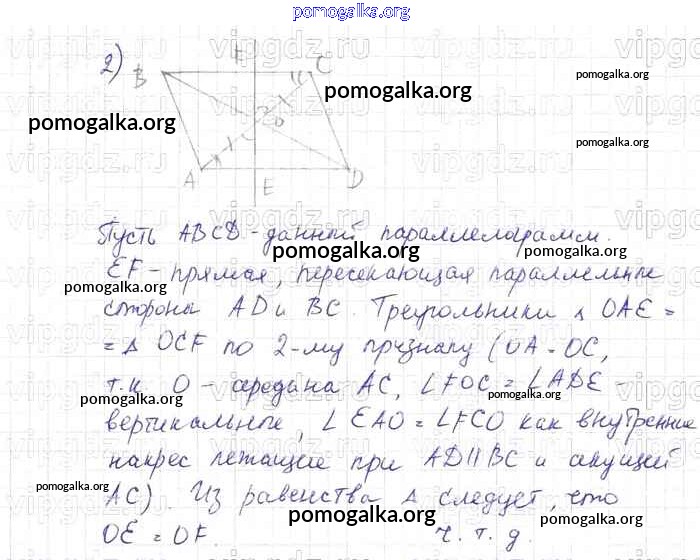 pomogalka.org
2) B H C
pomogalka.org
pomogalka.org
O
pomogalka.org
pomogalka.org
A E D
Пусть ABCD - данный параллелограмм.
pomogalka.org
EF - прямая, пересекающая параллельные
pomogalka.org
pomogalka.org
стороны AD и BC. Треугольники Δ OAE =
= Δ OCF по 2-му признаку (OA = OC,
т.к. O - середина AC, ∠FOC = ∠AOE -
pomogalka.org
pomogalka.org
вертикальные, ∠EAO = ∠FCO как внутренние
накрес лежащие при AD || BC и секущей
pomogalka.org
AC). Из равенства Δ следует, что
pomogalka.org
pomogalka.org
OE = OF. ч.т.д.